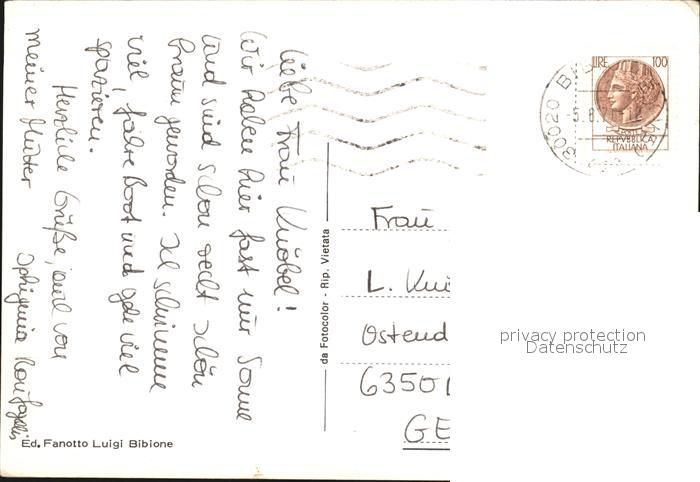 Liebe Frau Knöbel!
Wir haben hier fast nur Sonne
und sind schon recht schön
braun geworden. Ich schwimme
viel, fahre Boot und gehe viel
spazieren.
Herzliche Grüße, auch von
meiner Mutter
Iphigenia
Ed. Fanotto Luigi Bibione
da Fotocolor - Rip. Vietata
LIRE 100
REPVBBLICA
ITALIANA
30020
Frau
L. Knö
Ostend
6350
GE
privacy protection
Datenschutz